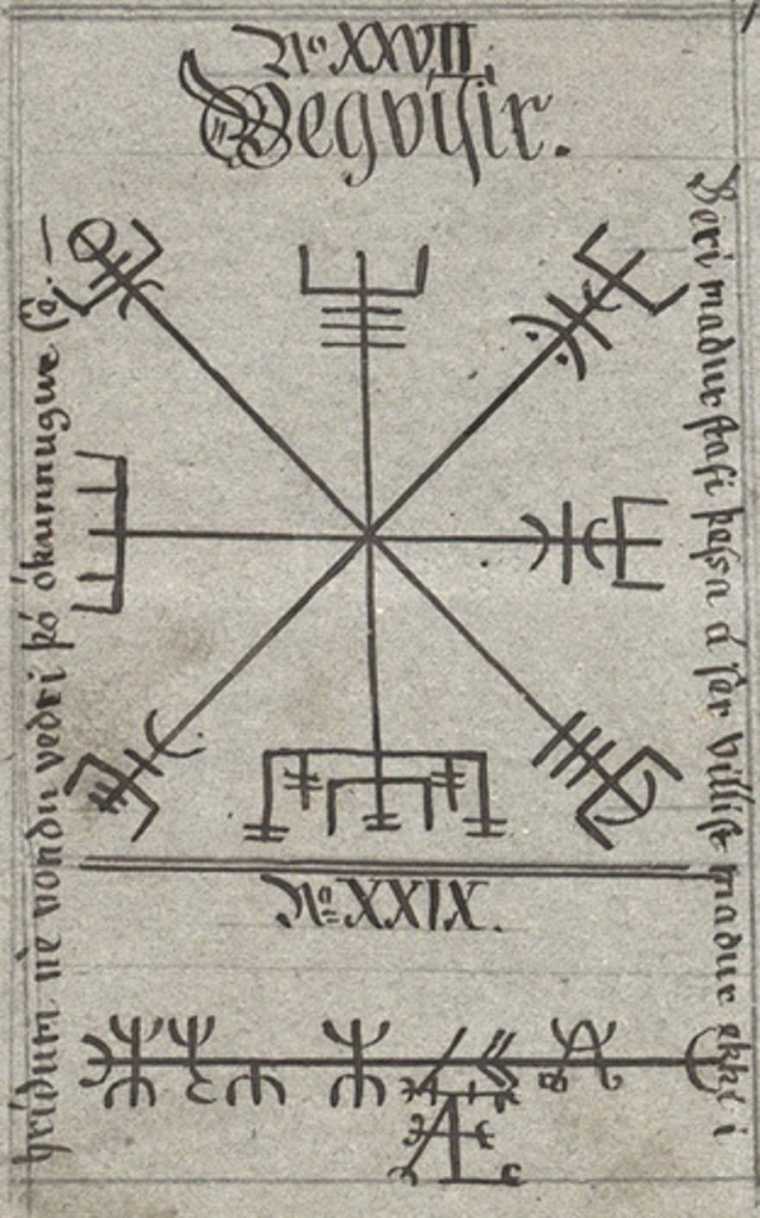 No XXVII.
Vegvísir.
Beri maður stafi þessa á sér villist maður ekki í
hríðum né vondu veðri þó ókunnugur sé. —
No XXIX.